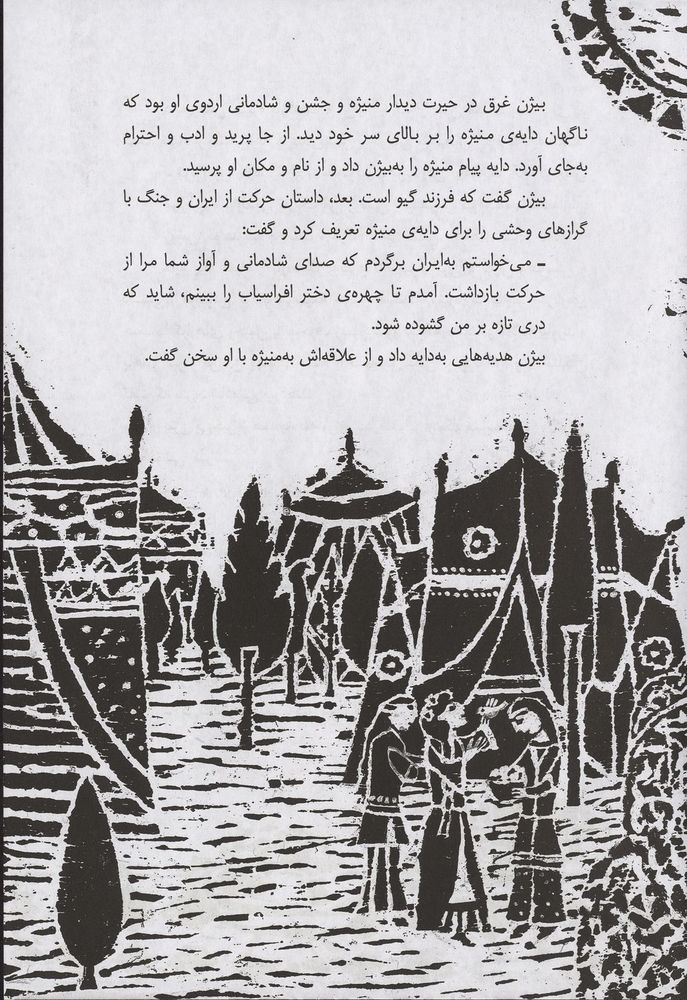 بیژن غرق در حیرت دیدار منیژه و جشن و شادمانی اردوی او بود که
ناگهان دایه‌ی منیژه را بر بالای سر خود دید. از جا پرید و ادب و احترام
به‌جای آورد. دایه پیام منیژه را به‌بیژن داد و از نام و مکان او پرسید.
بیژن گفت که فرزند گیو است. بعد، داستان حرکت از ایران و جنگ با
گرازهای وحشی را برای دایه‌ی منیژه تعریف کرد و گفت:
ـ می‌خواستم به‌ایران برگردم که صدای شادمانی و آواز شما مرا از
حرکت بازداشت. آمدم تا چهره‌ی دختر افراسیاب را ببینم، شاید که
دری تازه بر من گشوده شود.
بیژن هدیه‌هایی به‌دایه داد و از علاقه‌اش به‌منیژه با او سخن گفت.